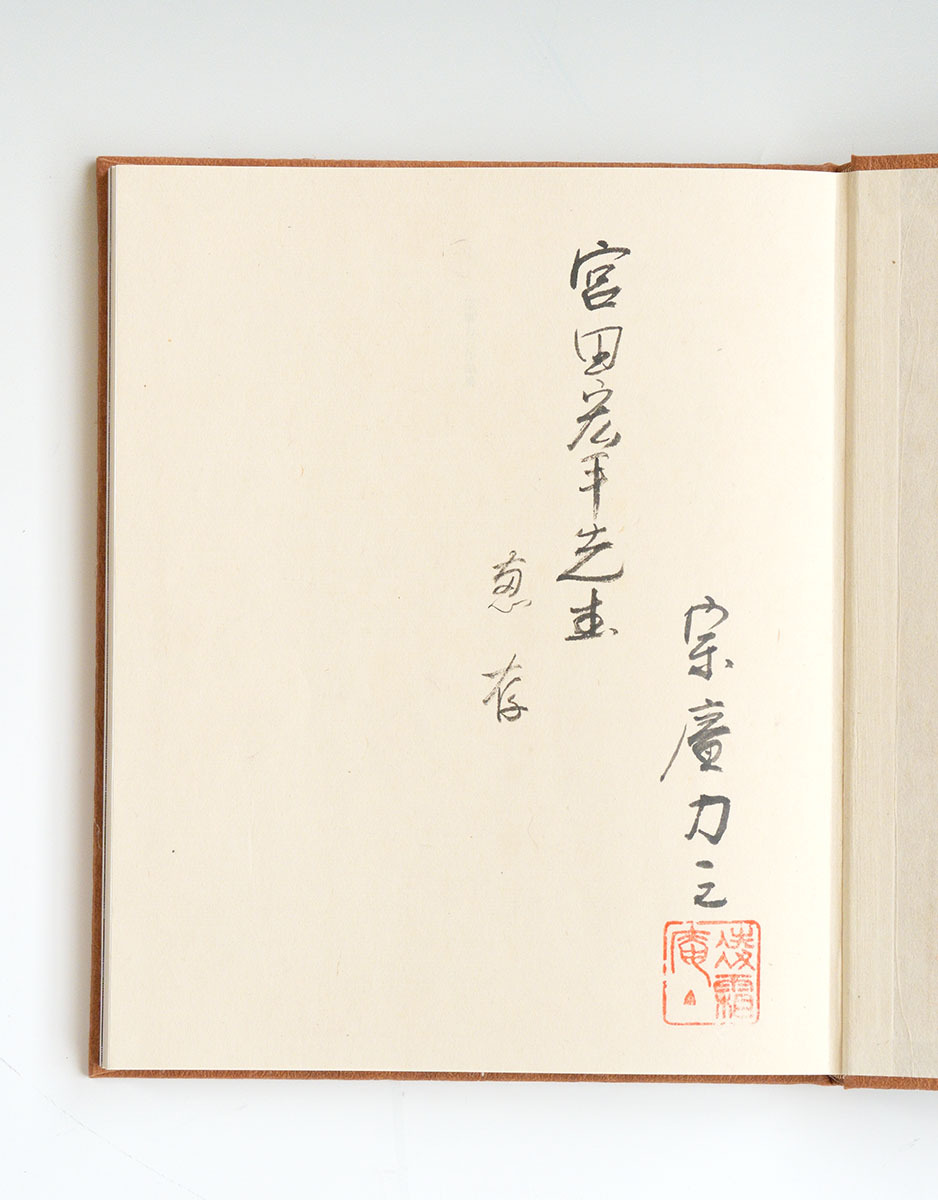 宗廣力三
宮田宏平先生
恵存
凌霜庵